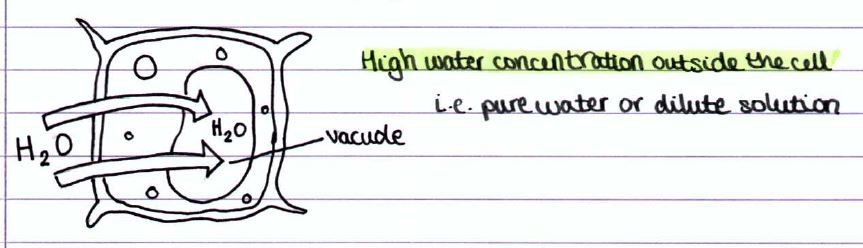 High water concentration outside the cell
i.e. pure water or dilute solution
H₂O
H₂O
vacuole